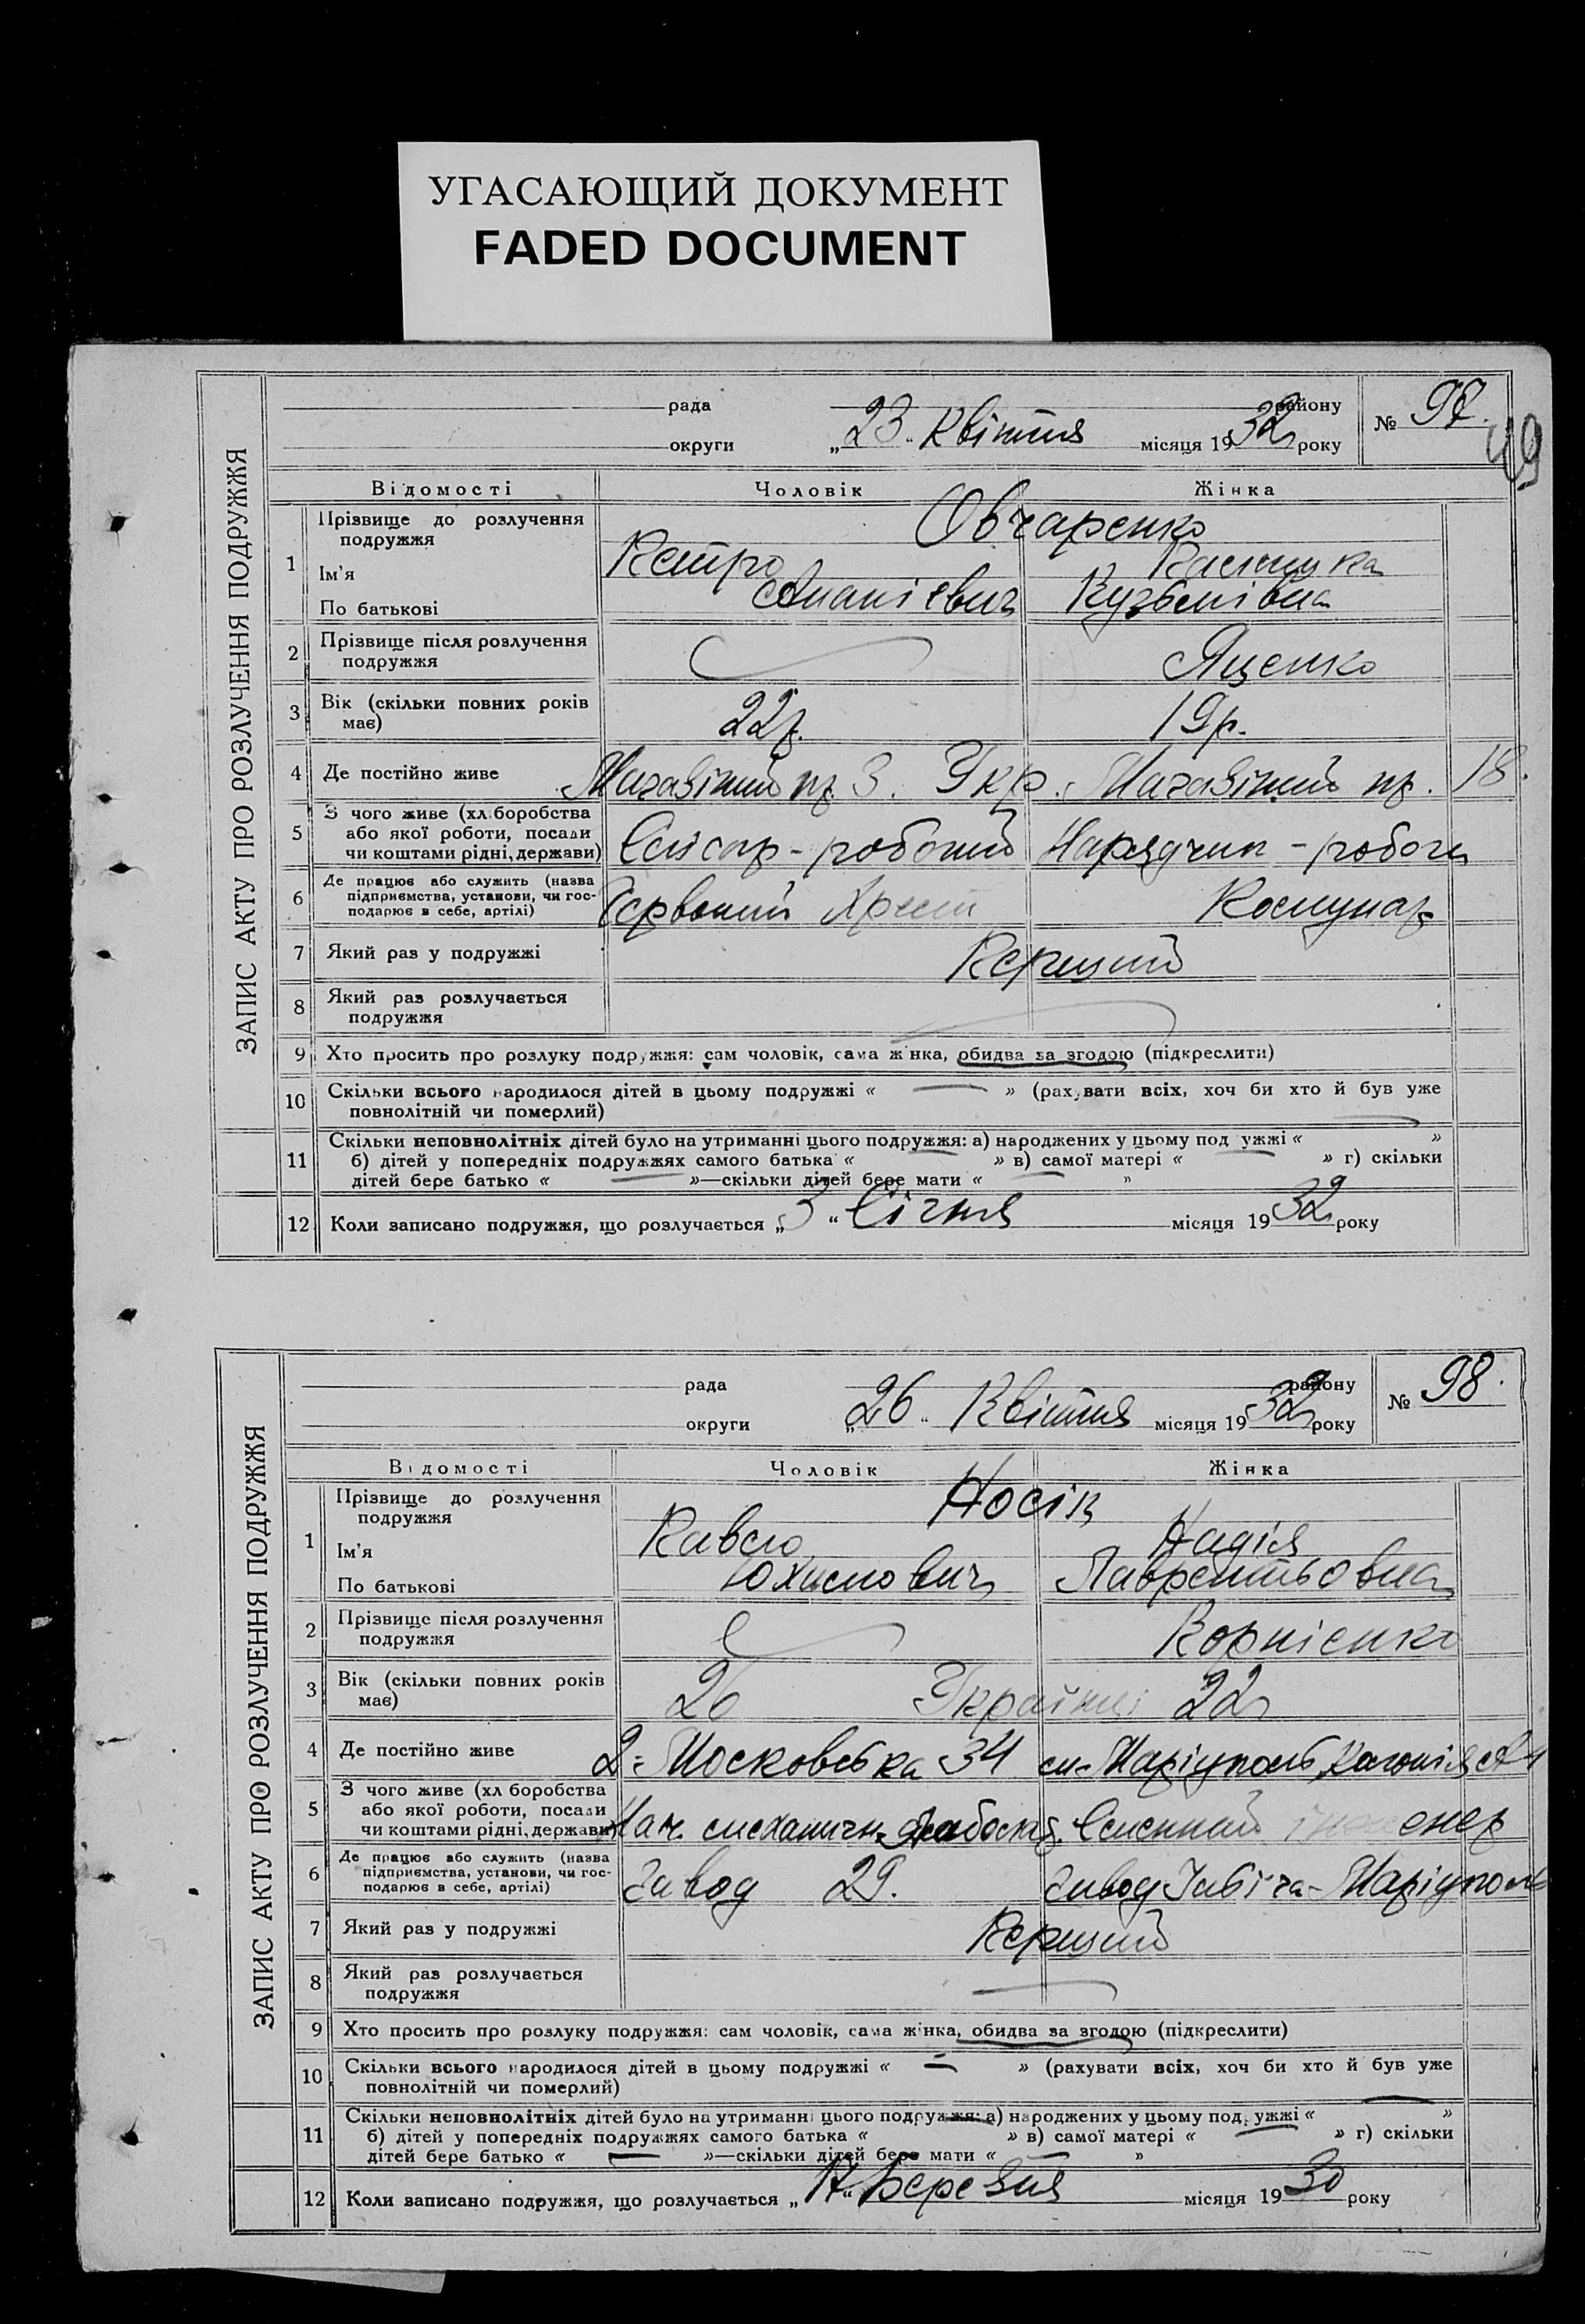 УГАСАЮЩИЙ ДОКУМЕНТ
FADED DOCUMENT
49
ЗАПИС АКТУ ПРО РОЗЛУЧЕННЯ ПОДРУЖЖЯ
рада району
округи „23“ Квітня місяця 1932 року
№ 97.
Відомості Чоловік Жінка
1 Прізвище до розлучення подружжя Овчаренко
Ім'я Петро
По батькові Ананієвич Кузьмівна
2 Прізвище після розлучення подружжя Яценко
3 Вік (скільки повних років має) 22р. 19р.
4 Де постійно живе пр 3. Укр. пр. 18.
5 З чого живе (хл.боробства
або якої роботи, посади
чи коштами рідні, держави) Слюсар - робочий Нарядчик - робоч
6 Де працює або служить (назва
підприємства, установи, чи гос-
подарює в себе, артілі) Червоний Хрест Комунар
7 Який раз у подружжі Перший
8 Який раз розлучається
подружжя
9 Хто просить про розлуку подружжя: сам чоловік, сама жінка, обидва за згодою (підкреслити)
10 Скільки всього народилося дітей в цьому подружжі « — » (рахувати всіх, хоч би хто й був уже
повнолітній чи померлий)
11 Скільки неповнолітніх дітей було на утриманні цього подружжя: а) народжених у цьому подружжі « — »
б) дітей у попередніх подружжях самого батька « — » в) самої матері « — » г) скільки
дітей бере батько « — »—скільки дітей бере мати « — »
12 Коли записано подружжя, що розлучається „3“ Січня місяця 1932 року
ЗАПИС АКТУ ПРО РОЗЛУЧЕННЯ ПОДРУЖЖЯ
рада району
округи „26“ Квітня місяця 1932 року
№ 98.
Відомості Чоловік Жінка
1 Прізвище до розлучення подружжя Носік
Ім'я Павло Надія
По батькові Юхимович Лаврентьовна
2 Прізвище після розлучення подружжя Корнієнко
3 Вік (скільки повних років має) 26 Українці 22
4 Де постійно живе 2-Московська 34 м-Маріуполь,
5 З чого живе (хл.боробства
або якої роботи, посади
чи коштами рідні, держави) Нач. механичн. Змінний інженер
6 Де працює або служить (назва
підприємства, установи, чи гос-
подарює в себе, артілі) Завод 29. Завод Іліїча-Маріуполь
7 Який раз у подружжі Перший
8 Який раз розлучається
подружжя
9 Хто просить про розлуку подружжя: сам чоловік, сама жінка, обидва за згодою (підкреслити)
10 Скільки всього народилося дітей в цьому подружжі « — » (рахувати всіх, хоч би хто й був уже
повнолітній чи померлий)
11 Скільки неповнолітніх дітей було на утриманні цього подружжя: а) народжених у цьому подружжі « — »
б) дітей у попередніх подружжях самого батька « — » в) самої матері « — » г) скільки
дітей бере батько « — »—скільки дітей бере мати « — »
12 Коли записано подружжя, що розлучається Березня місяця 1930 року